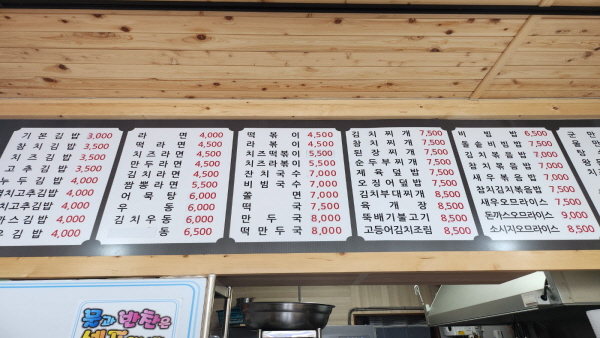 기본김밥 3,000
참치김밥 3,500
치즈김밥 3,500
고추김밥 3,500
김밥 4,000
치고추김밥 4,000
치고추김밥 4,000
까스김밥 4,000
김밥 4,000
라면 4,000
떡라면 4,500
치즈라면 4,500
만두라면 4,500
김치라면 4,500
짬뽕라면 5,500
어묵탕 6,000
우동 6,000
김치우동 6,000
동 6,500
떡볶이 4,500
라볶이 4,500
치즈떡볶이 5,500
치즈라볶이 5,500
잔치국수 7,000
비빔국수 7,000
쫄면 7,000
떡국 7,500
만두국 8,000
떡만두국 8,000
김치찌개 7,500
참치찌개 7,500
된장찌개 7,500
순두부찌개 7,500
제육덮밥 7,500
오징어덮밥 7,500
김치부대찌개 8,500
육개장 8,500
뚝배기불고기 8,500
고등어김치조림 8,500
비빔밥 6,500
돌솥비빔밥 7,500
김치볶음밥 7,000
참치볶음밥 7,000
새우볶음밥 7,000
참치김치볶음밥 7,500
새우오므라이스 7,500
돈까스오므라이스 9,000
소시지오므라이스 8,500
물과 반찬은
셀프